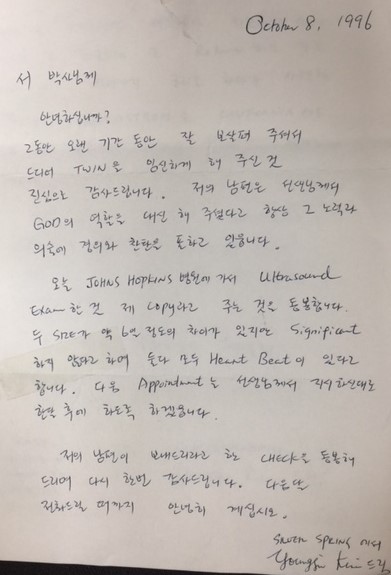 October 8, 1996
서 박사님께
안녕하십니까?
그동안 오랜 기간 동안 잘 보살펴 주셔서
드디어 TWIN을 임신하게 해 주신 것
진심으로 감사드립니다. 저의 남편은 선생님께서
GOD의 역할을 대신 해 주셨다고 항상 그 노력과
의술에 경의와 찬탄을 표하고 있읍니다.
오늘 JOHNS HOPKINS 병원에 가서 Ultrasound
Exam 한 것 제 copy라고 주는 것을 동봉합니다.
두 SIZE가 약 6일 정도의 차이가 있지만 Significant
하지 않다고 하며 둘다 모두 Heart Beat이 있다고
합니다. 다음 Appointment는 선생님께서 지시하신대로
한달 후에 하도록 하겠읍니다.
저의 남편이 보내드리라고 한 CHECK을 동봉해
드리며 다시 한번 감사드립니다. 다음달
전화드릴 때까지 안녕히 계십시오.
SILVER SPRING 에서
Kim 드림